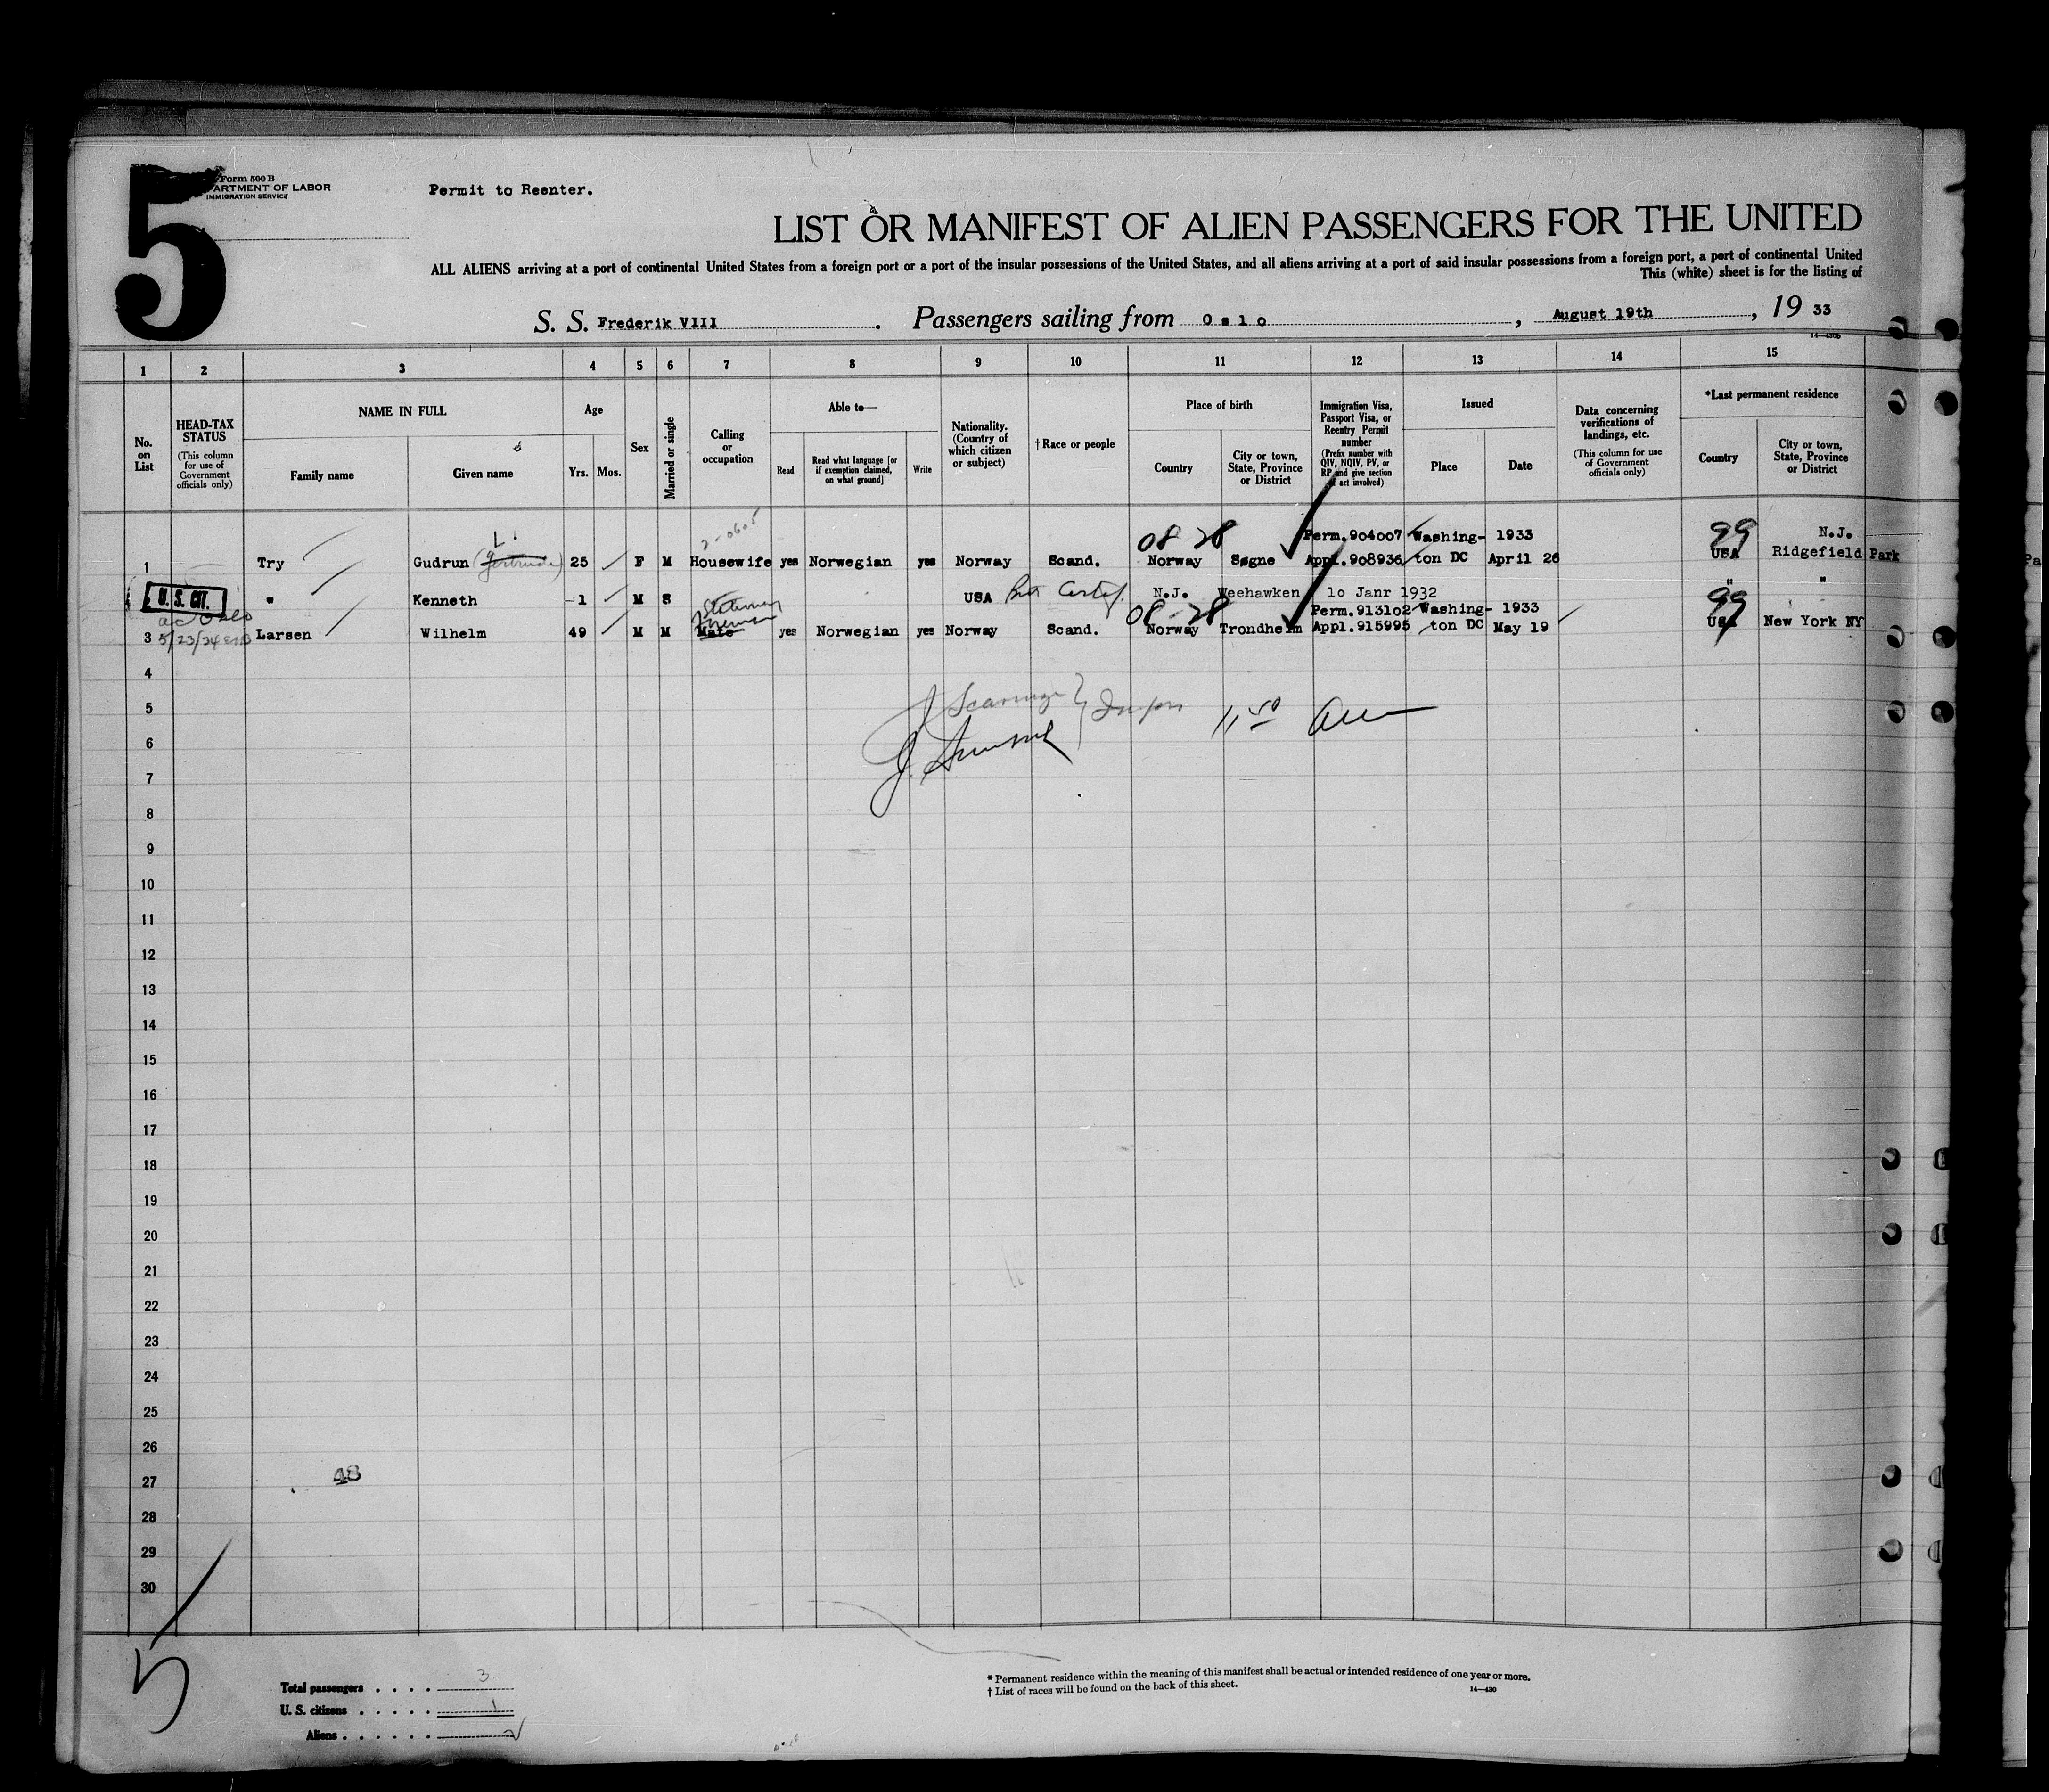 5
Form 500 B
ARTMENT OF LABOR
IMMIGRATION SERVICE
Permit to Reenter.
LIST OR MANIFEST OF ALIEN PASSENGERS FOR THE UNITED
ALL ALIENS arriving at a port of continental United States from a foreign port or a port of the insular possessions of the United States, and all aliens arriving at a port of said insular possessions from a foreign port, a port of continental United
This (white) sheet is for the listing of
S. S. Frederik VIII. Passengers sailing from Oslo, August 19th, 19 33
14—430b
1 2 3 4 5 6 7 8 9 10 11 12 13 14 15
No. on List
HEAD-TAX STATUS (This column for use of Government officials only)
NAME IN FULL Family name Given name
Age Yrs. Mos.
Sex
Married or single
Calling or occupation
Able to— Read Read what language [or if exemption claimed, on what ground] Write
Nationality. (Country of which citizen or subject)
†Race or people
Place of birth Country City or town, State, Province or District
Immigration Visa, Passport Visa, or Reentry Permit number (Prefix number with QIV, NQIV, PV, or RP and give section of act involved)
Issued Place Date
Data concerning verifications of landings, etc. (This column for use of Government officials only)
*Last permanent residence Country City or town, State, Province or District
L. 2-0605 08 28 Perm.904007 Washing- 1933 99 N.J.
1 Try Gudrun (Gertrude) 25 F M Housewife yes Norwegian yes Norway Scand. Norway Søgne Appl.908936 ton DC April 26 USA Ridgefield Park
2 U. S. CIT. " Kenneth 1 M S USA N.J. Weehawken 10 Janr 1932 " "
08-28 Perm.913102 Washing- 1933 99
3 5/23/34 Larsen Wilhelm 49 M M Mate yes Norwegian yes Norway Scand. Norway Trondheim Appl.915995 ton DC May 19 USA New York NY
4
5
11 50
6
7
8
9
10
11
12
13
14
15
16
17
18
19
20
21
22
23
24
25
26
27 48
28
29
30
5
Total passengers . . . . 3
U. S. citizens . . . . . 1
Aliens . . . . . . 2
* Permanent residence within the meaning of this manifest shall be actual or intended residence of one year or more.
† List of races will be found on the back of this sheet.
14—430